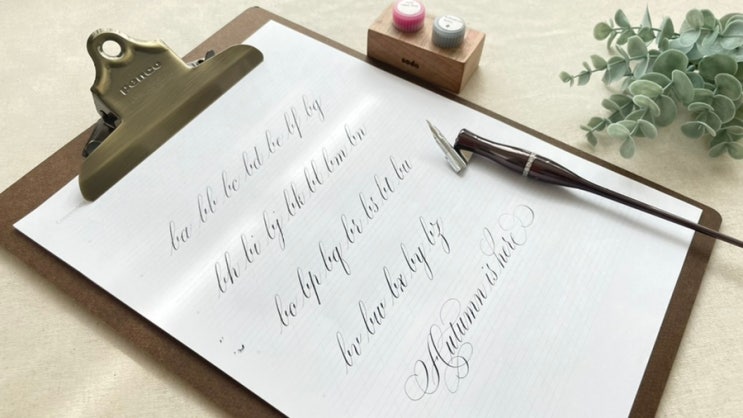 penco
ba bb bc bd be bf bg
bh bi bj bk bl bm bn
bo bp bq br bs bt bu
bv bw bx by bz
Autumn is here